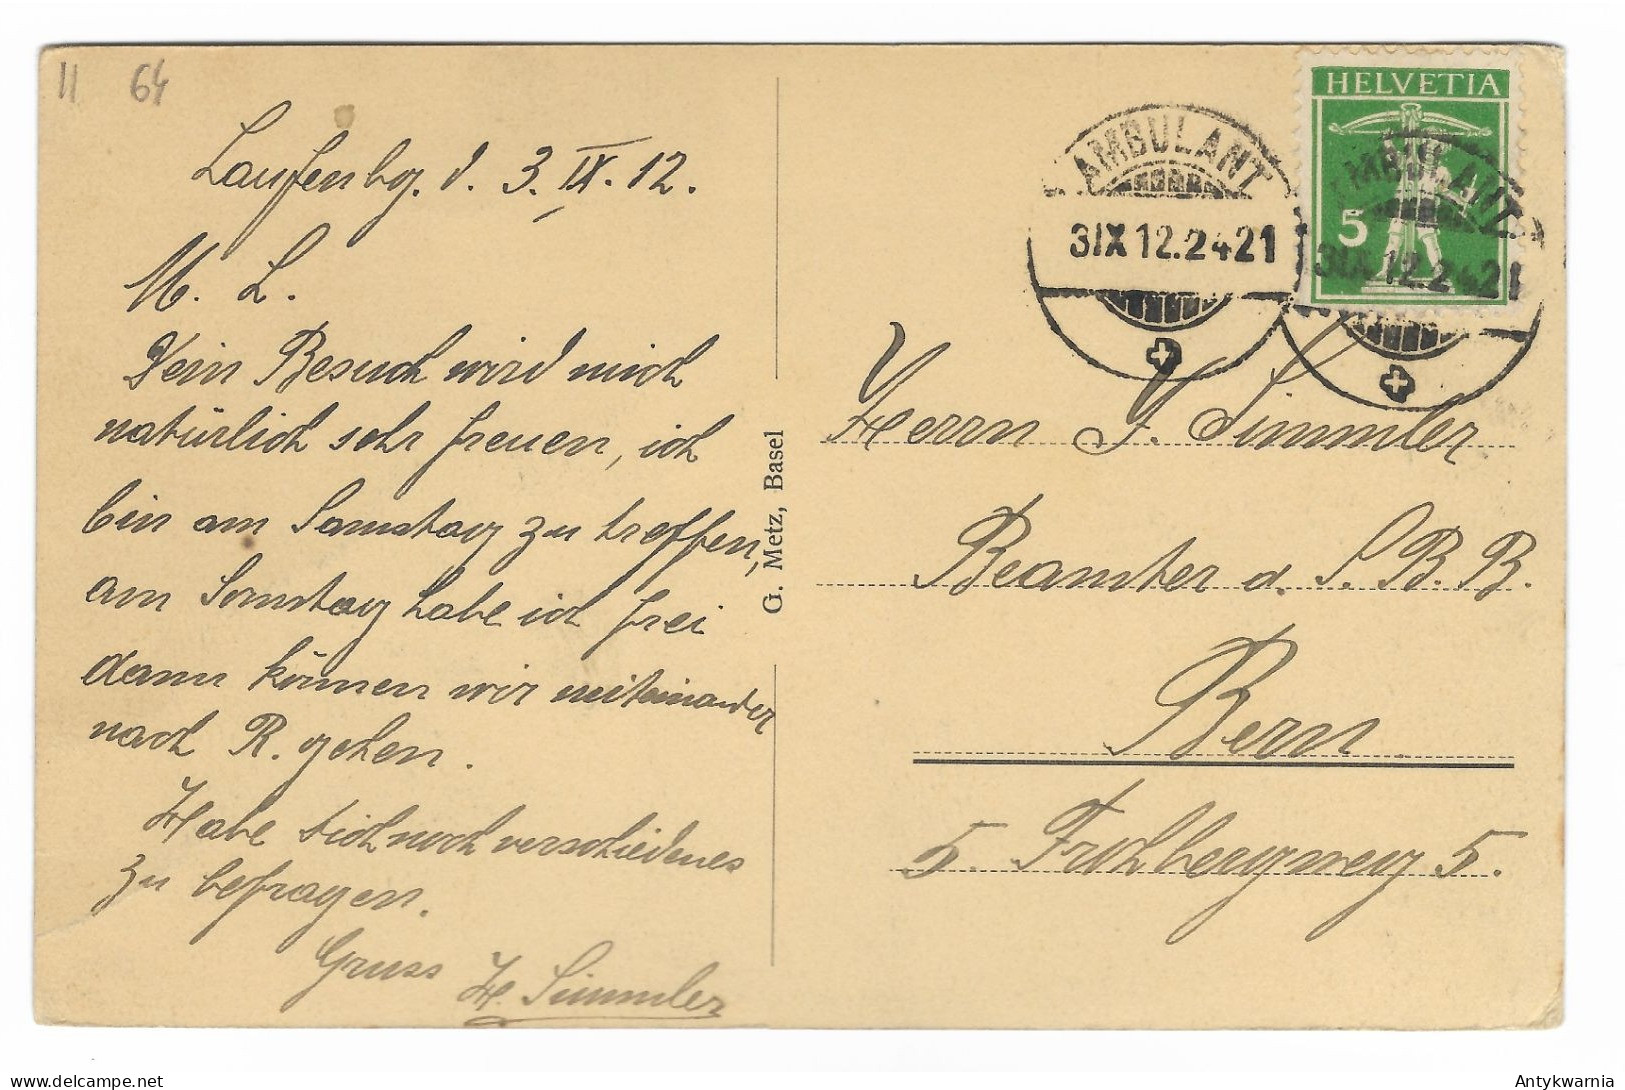 11 64
Laufenbg. d. 3. IX. 12.
M. L.
Dein Besuch wird mich
natürlich sehr freuen, ich
bin am Samstag zu treffen,
am Samstag habe ich frei
dann können wir miteinander
nach R. gehen.
Habe dich noch verschiedenes
zu befragen.
Gruss H. Simmler
G. Metz, Basel
HELVETIA
5
AMBULANT
3 IX 12.2421
AMBULANT
3 IX 12.2421
Herrn J. Simmler
Beamter d. S. B. B.
Bern.
5. Frohbergweg 5.
Antykwarnia